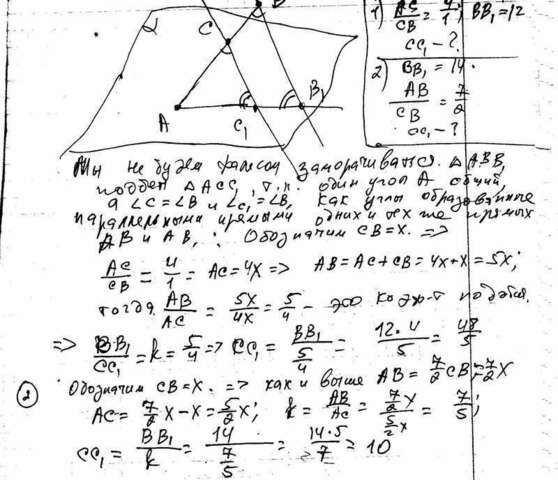 α
B
C
B₁
A
C₁
1) AC/CB = 4/1; BB₁ = 12
CC₁ - ?
2) BB₁ = 14.
AB/CB = 7/2
CC₁ - ?
Мы не будем заморачиваться. △ABB₁
подобен △ACC₁, т.к. один угол A общий,
а ∠C = ∠B и ∠C₁ = ∠B₁ как углы образованные
параллельными прямыми одних и тех же прямых
AB и AB₁ Обозначим CB = x. =>
AC/CB = 4/1 = AC = 4x => AB = AC + CB = 4x + x = 5x;
тогда AB/AC = 5x/4x = 5/4 - это коэф-т подобия.
=> BB₁/CC₁ = k = 5/4 => CC₁ = BB₁/(5/4) = 12·4/5 = 48/5
② Обозначим CB = x. => как и выше AB = 7/2 CB = 7/2 x
AC = 7/2 x - x = 5/2 x; k = AB/AC = (7/2 x)/(5/2 x) = 7/5;
CC₁ = BB₁/k = 14/(7/5) = 14·5/7 = 10